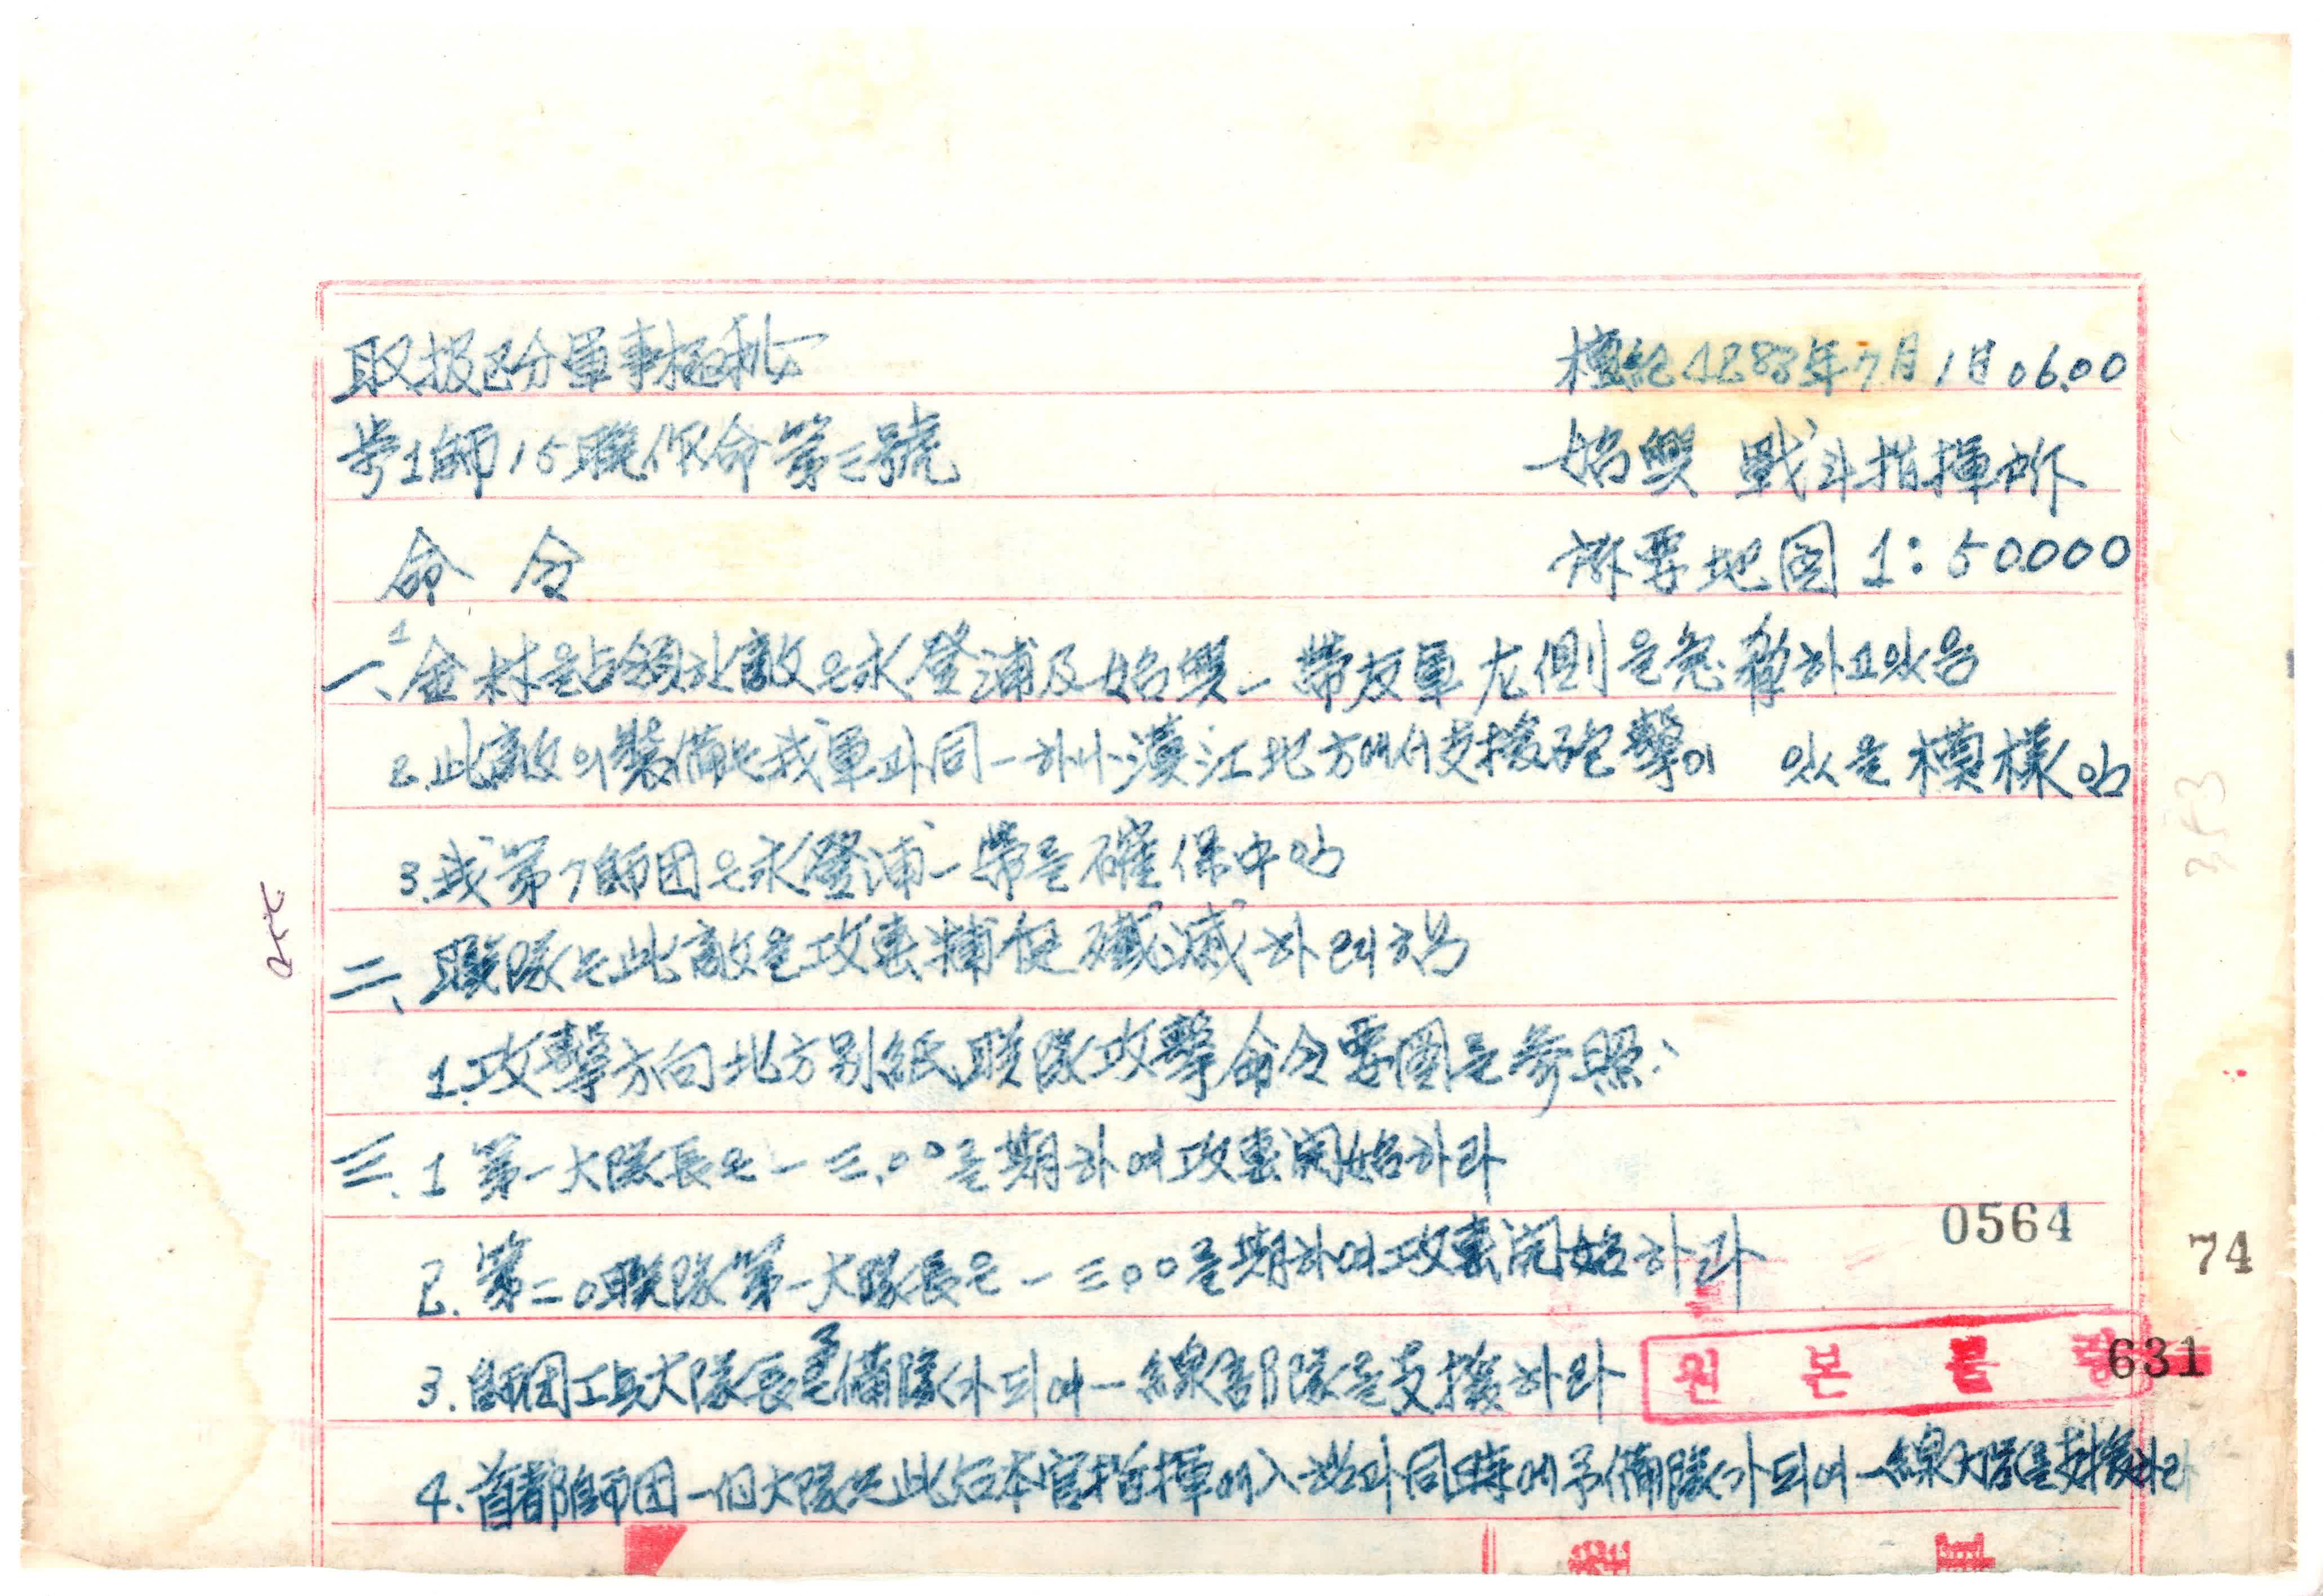 取扱區分軍事極秘 檀紀4283年7月1日06.00
步1師15聯作命第三號 始興 戰斗指揮所
命令 所要地図 1:50000
一、1 金村을占領한敵은永登浦及始興一帶友軍左側을急襲하고있음
2.此敵의裝備는我軍과同一하나漢江北方에서支援砲擊이 있을模樣임
3.我第7師団은永登浦一帶를確保中임
二、聯隊는此敵을攻擊捕捉殲滅하려함
1.攻擊方向北方別紙聯隊攻擊命令要圖를參照
三.1 第一大隊長은一三.00를期하여攻擊開始하라
2.第二0聯隊第一大隊長은一三00를期하여攻擊開始하라
0564
74
3.師団工兵大隊長은予備隊가되여一線部隊를支援하라
원본
631
4.首都師団一個大隊는此后本官指揮에入함과同時에予備隊가되여一線大隊를支援하라
353
255